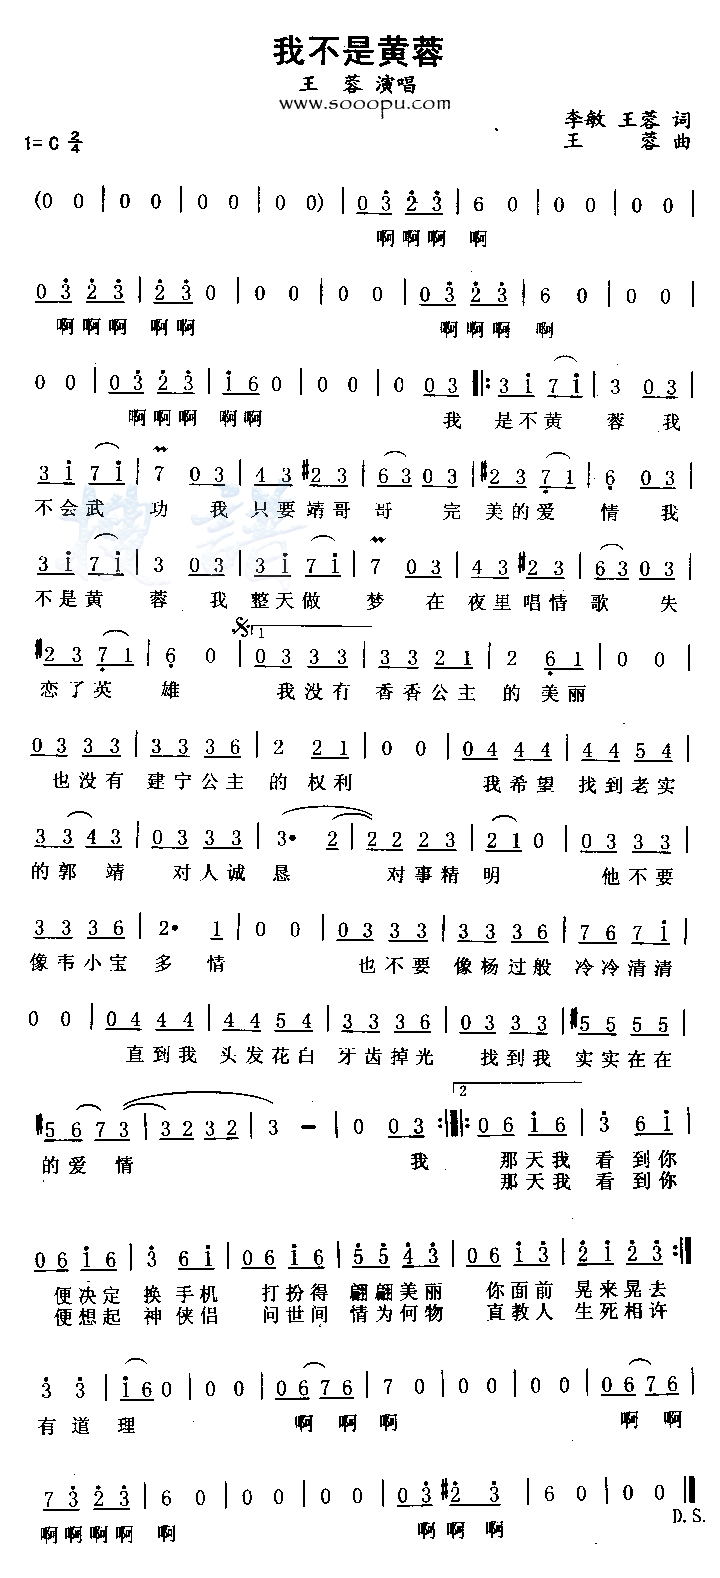 我不是黄蓉
王 蓉 演唱
www.sooopu.com
李敏 王蓉 词
1= C 2/4
王 蓉 曲
(0 0 | 0 0 | 0 0 | 0 0) | 0 3 2 3 | 6 0 | 0 0 | 0 0 |
啊啊啊 啊
0 3 2 3 | 2 3 0 | 0 0 | 0 0 | 0 3 2 3 | 6 0 | 0 0 |
啊啊啊 啊啊 啊啊啊 啊
0 0 | 0 3 2 3 | 1 6 0 | 0 0 | 0 0 3 |: 3 1 7 1 | 3 0 3 |
啊啊啊 啊啊 我 是不黄 蓉 我
3 1 7 1 | 7 0 3 | 4 3 #2 3 | 6 3 0 3 | #2 3 7 1 | 6 0 3 |
不会武 功 我 只要靖哥 哥 完 美的爱 情 我
3 1 7 1 | 3 0 3 | 3 1 7 1 | 7 0 3 | 4 3 #2 3 | 6 3 0 3 |
不是黄 蓉 我 整天做 梦 在 夜里唱情 歌 失
1
#2 3 7 1 | 6 0 | 0 3 3 3 | 3 3 2 1 | 2 6 1 | 0 0 |
恋了英 雄 我没有 香香公主 的 美丽
0 3 3 3 | 3 3 3 6 | 2 2 1 | 0 0 | 0 4 4 4 | 4 4 5 4 |
也没有 建宁公主 的 权利 我希望 找到老实
3 3 4 3 | 0 3 3 3 | 3• 2 | 2 2 2 3 | 2 1 0 | 0 3 3 3 |
的郭 靖 对人诚 恳 对事精 明 他不要
3 3 3 6 | 2• 1 | 0 0 | 0 3 3 3 | 3 3 3 6 | 7 6 7 1 |
像韦小宝 多 情 也不要 像杨过般 冷冷清清
0 0 | 0 4 4 4 | 4 4 5 4 | 3 3 3 6 | 0 3 3 3 | #5 5 5 5 |
直到我 头发花白 牙齿掉光 找到我 实实在在
2
#5 6 7 3 | 3 2 3 2 | 3 — | 0 0 3 :|: 0 6 1 6 | 3 6 1 |
的爱 情 我 那天我 看 到你
那天我 看 到你
0 6 1 6 | 3 6 1 | 0 6 1 6 | 5 5 4 3 | 0 6 1 6 | 2 1 2 3 :|
便决定 换 手机 打扮得 翩翩美丽 你面前 晃来晃去
便想起 神 侠侣 问世间 情为何物 直教人 生死相许
3 3 | 1 6 0 | 0 0 | 0 6 7 6 | 7 0 | 0 0 | 0 0 | 0 6 7 6 |
有 道 理 啊 啊 啊 啊 啊
7 3 2 3 | 6 0 | 0 0 | 0 0 | 0 3 #2 3 | 6 0 | 0 0 ‖
D.S.
啊啊啊啊 啊 啊啊 啊